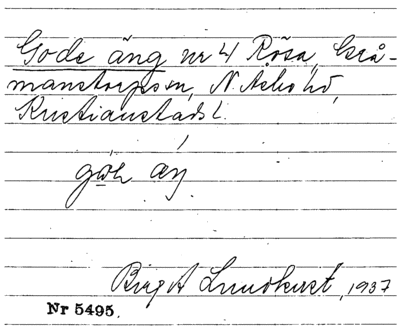 Gode äng nr 4 Rösa, Grå-
manstorps sn, N. Åsbo hd,
Kristianstads l.
Birgit Lundkvist, 1937
Nr 5495.